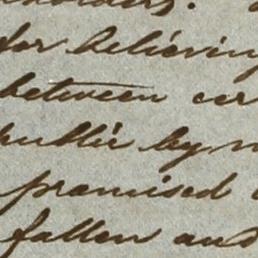 for believing
between
public by
promised
fallen and